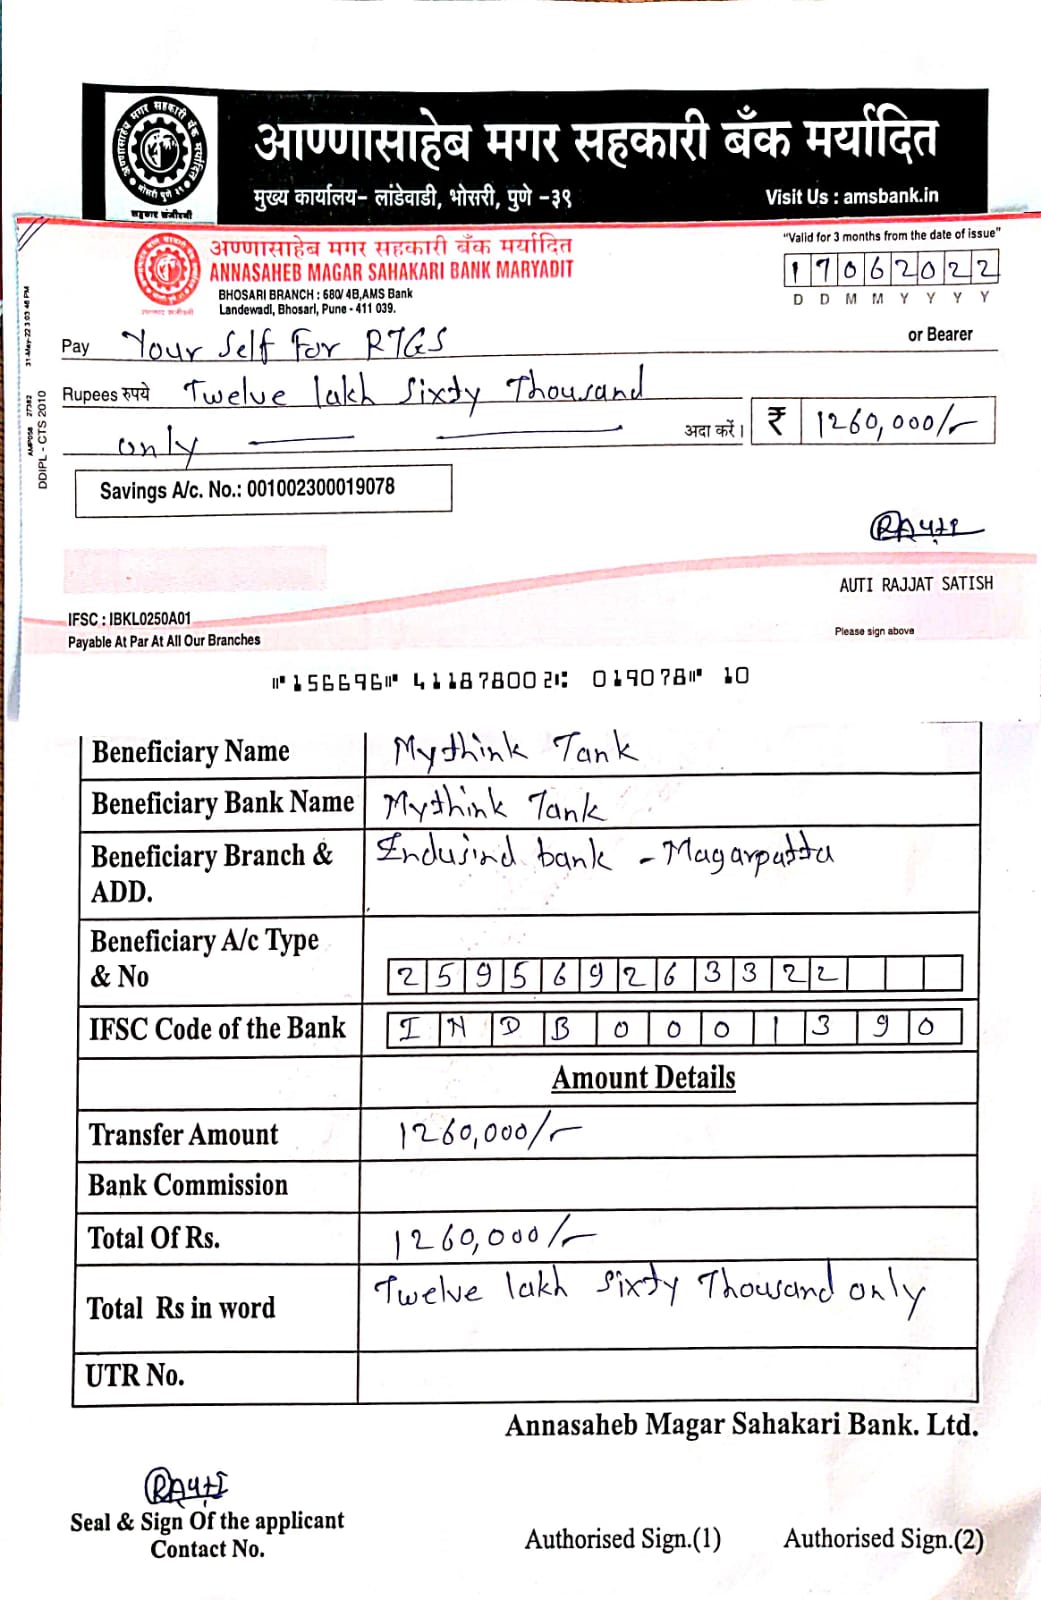 आण्णासाहेब मगर सहकारी बँक मर्यादित
मुख्य कार्यालय- लांडेवाडी, भोसरी, पुणे -३९
Visit Us : amsbank.in
अण्णासाहेब मगर सहकारी बँक मर्यादित
ANNASAHEB MAGAR SAHAKARI BANK MARYADIT
BHOSARI BRANCH : 680/ 4B,AMS Bank
Landewadi, Bhosari, Pune - 411 039.
"Valid for 3 months from the date of issue"
17062022
D D M M Y Y Y Y
Pay Your Self For RTGS or Bearer
Rupees रुपये Twelve lakh Sixty Thousand
only अदा करें। ₹ 1260,000/-
31-May-22 3:03:46 PM
DDIPL - CTS 2010
Savings A/c. No.: 001002300019078
AUTI RAJJAT SATISH
Please sign above
IFSC : IBKL0250A01
Payable At Par At All Our Branches
⑈156696⑈ 411878002⑆ 019078⑈ 10
Beneficiary Name Mythink Tank
Beneficiary Bank Name Mythink Tank
Beneficiary Branch & ADD. Indusind bank - Magarpatta
Beneficiary A/c Type & No 259569263322
IFSC Code of the Bank INDB0001390
Amount Details
Transfer Amount 1260,000/-
Bank Commission
Total Of Rs. 1260,000/-
Total Rs in word Twelve lakh Sixty Thousand only
UTR No.
Annasaheb Magar Sahakari Bank. Ltd.
Seal & Sign Of the applicant
Contact No.
Authorised Sign.(1) Authorised Sign.(2)